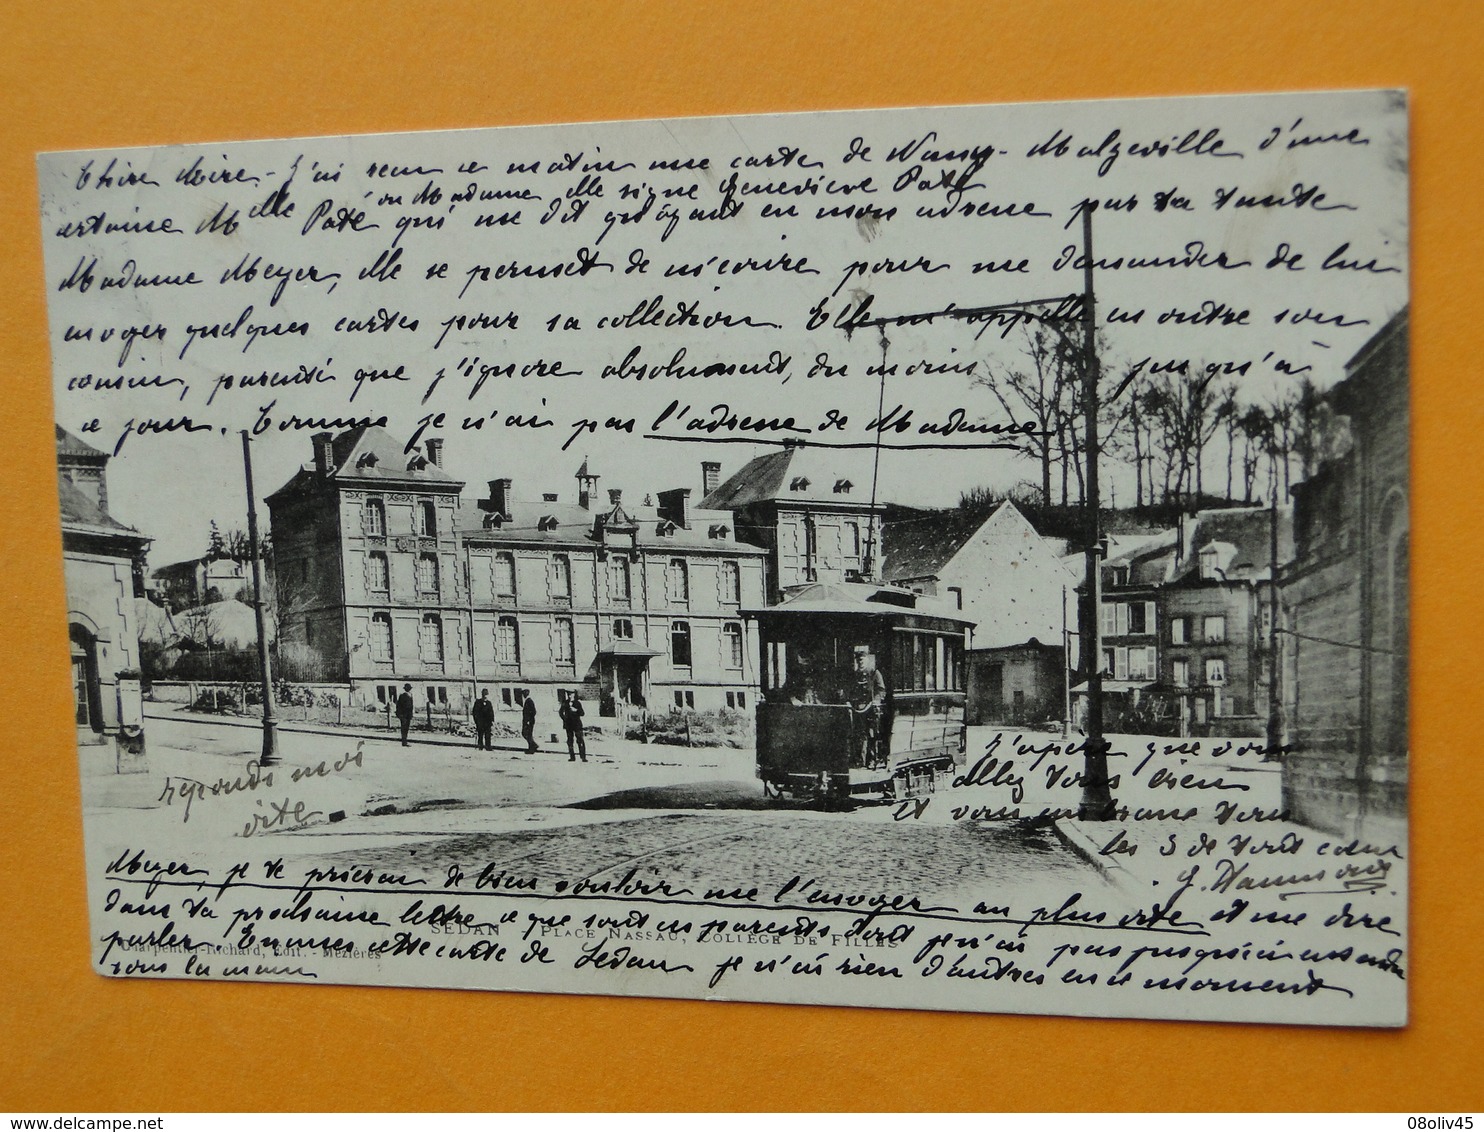 Chère Mère - J'ai reçu ce matin une carte de Nancy - Malzéville d'une
ou Madame elle signe Geneviève Paté
certaine Melle Paté qui me dit qu'ayant eu mon adresse par ta tante
Madame Meyer, elle se permet de m'écrire pour me demander de lui
envoyer quelques cartes pour sa collection. Elle m'appelle en outre son
cousin, parenté que j'ignore absolument, du moins jusqu'à
ce jour. Comme je n'ai pas l'adresse de Madame
reponds moi
vite
J'espère que vous
allez tous bien
et vous embrasse tous
les 3 de tout cœur
Meyer, je te prierai de bien vouloir me l'envoyer au plus vite et me dire
dans ta prochaine lettre ce que sont ces parents dont je n'ai pas jusqu'ici entendu
SEDAN - PLACE NASSAU, COLLÈGE DE FILLES
parler. Excuses cette carte de Sedan je n'ai rien d'autres en ce moment
Charpentier-Richard, Édit. - Mézières
sous la main
08oliv45